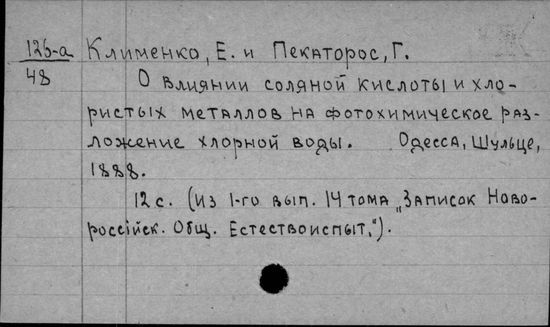 126-а Клименко, Е. и Пекаторос, Г.
48 О влиянии соляной кислоты и хло-
ристых металлов на фотохимическое раз-
ложение хлорной воды. Одесса, Шульце,
1888.
12 с. (из 1-го вып. 14 тома „Записок Ново-
россійск. Общ. Естествоиспыт.").